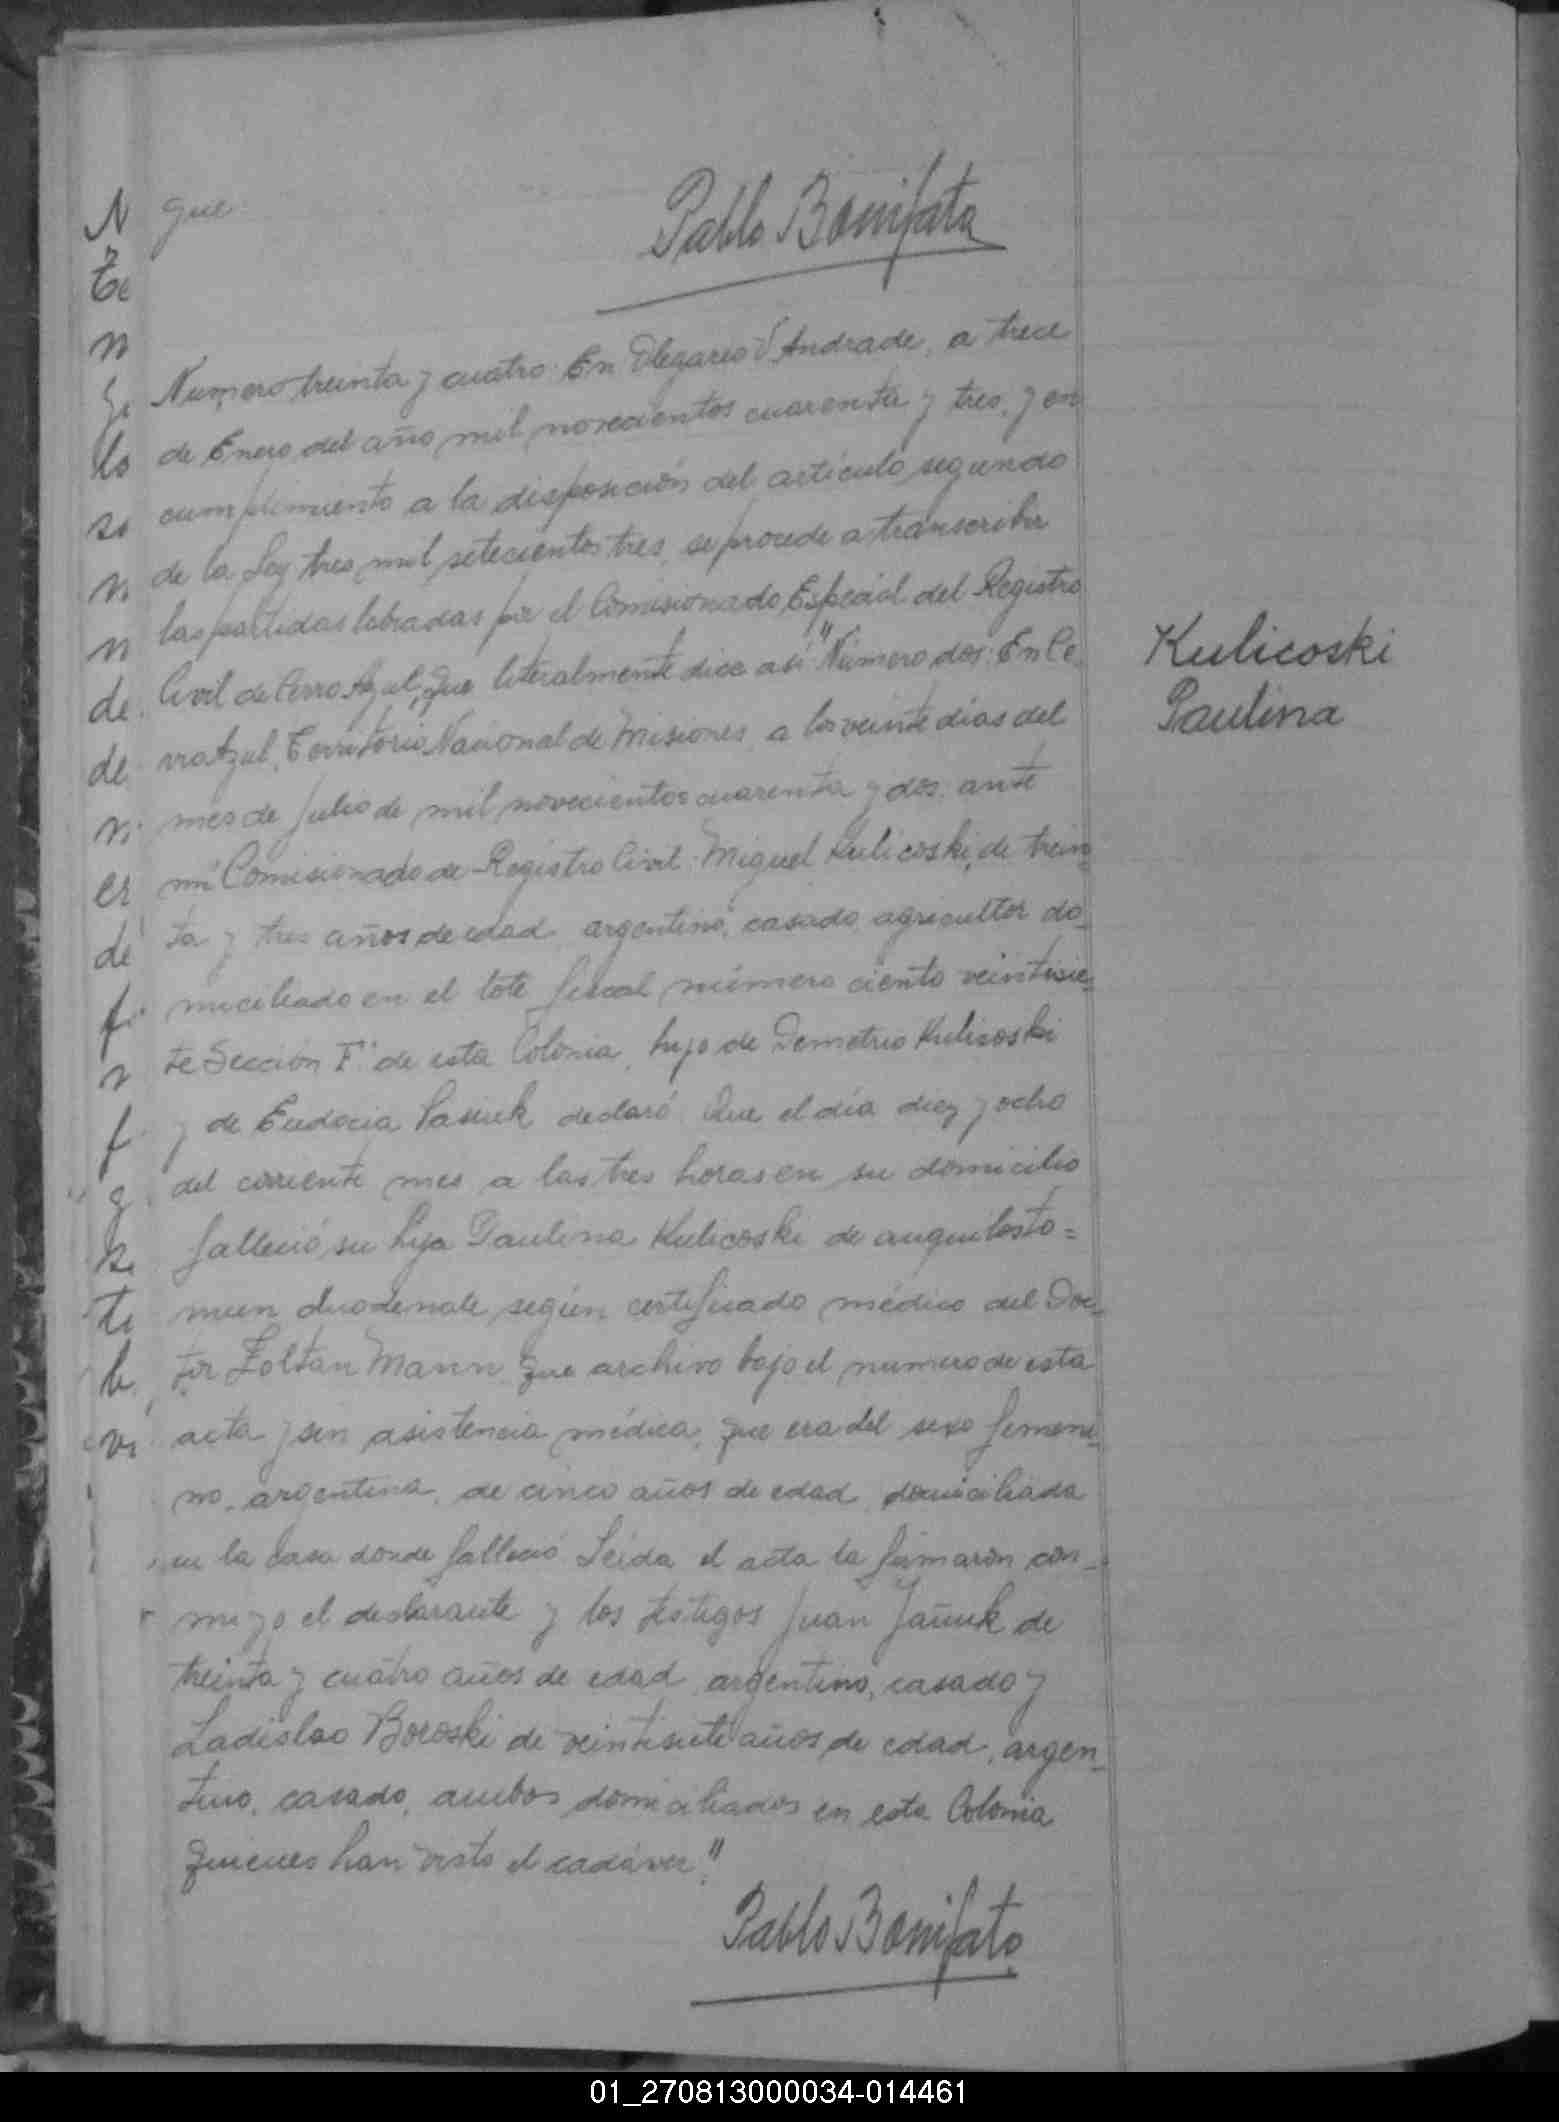 que
Pablo Bonifato
Numero treinta y cuatro. En Olegario V Andrade, a trece
de Enero del año mil novecientos cuarenta y tres, y en
cumplimiento a la disposición del artículo segundo
de la Ley tres mil setecientos tres, se procede a transcribir
las partidas labradas por el Comisionado Especial del Registro
Civil de Cerro Azul, que literalmente dice así "Número dos: En Ce
rro Azul, Territorio Nacional de Misiones, a los veinte días del
mes de Julio de mil novecientos cuarenta y dos. ante
mi Comisionado de Registro Civil: Miguel Kulicoski, de trein
ta y tres años de edad, argentino, casado, agricultor do-
miciliado en el lote fiscal número ciento veintisie-
te Sección F. de esta Colonia, hijo de Demetrio Kulicoski
y de Eudocia declaró: Que el día diez y ocho
del corriente mes a las tres horas en su domicilio
falleció su hija Paulina Kulicoski de anquilosto=
mien duodenale según certificado médico del Doc-
tor Zoltan Mann que archivo bajo el numero de esta
acta y sin asistencia médica, que era del sexo femeni-
no, argentina, de cinco años de edad, domiciliada
en la casa donde falleció Leida el acta la firmaron con-
migo el declarante y los testigos Juan de
treinta y cuatro años de edad, argentino, casado y
Ladislao Boroski de veintisiete años de edad, argen-
tino, casado, ambos domiciliados en esta Colonia
quienes han visto el cadáver."
Pablo Bonifato
Kulicoski
Paulina
N
Te
n
lo
n
n
de
de
n
er
de
f
r
f
te
b
vi
01_270813000034-014461